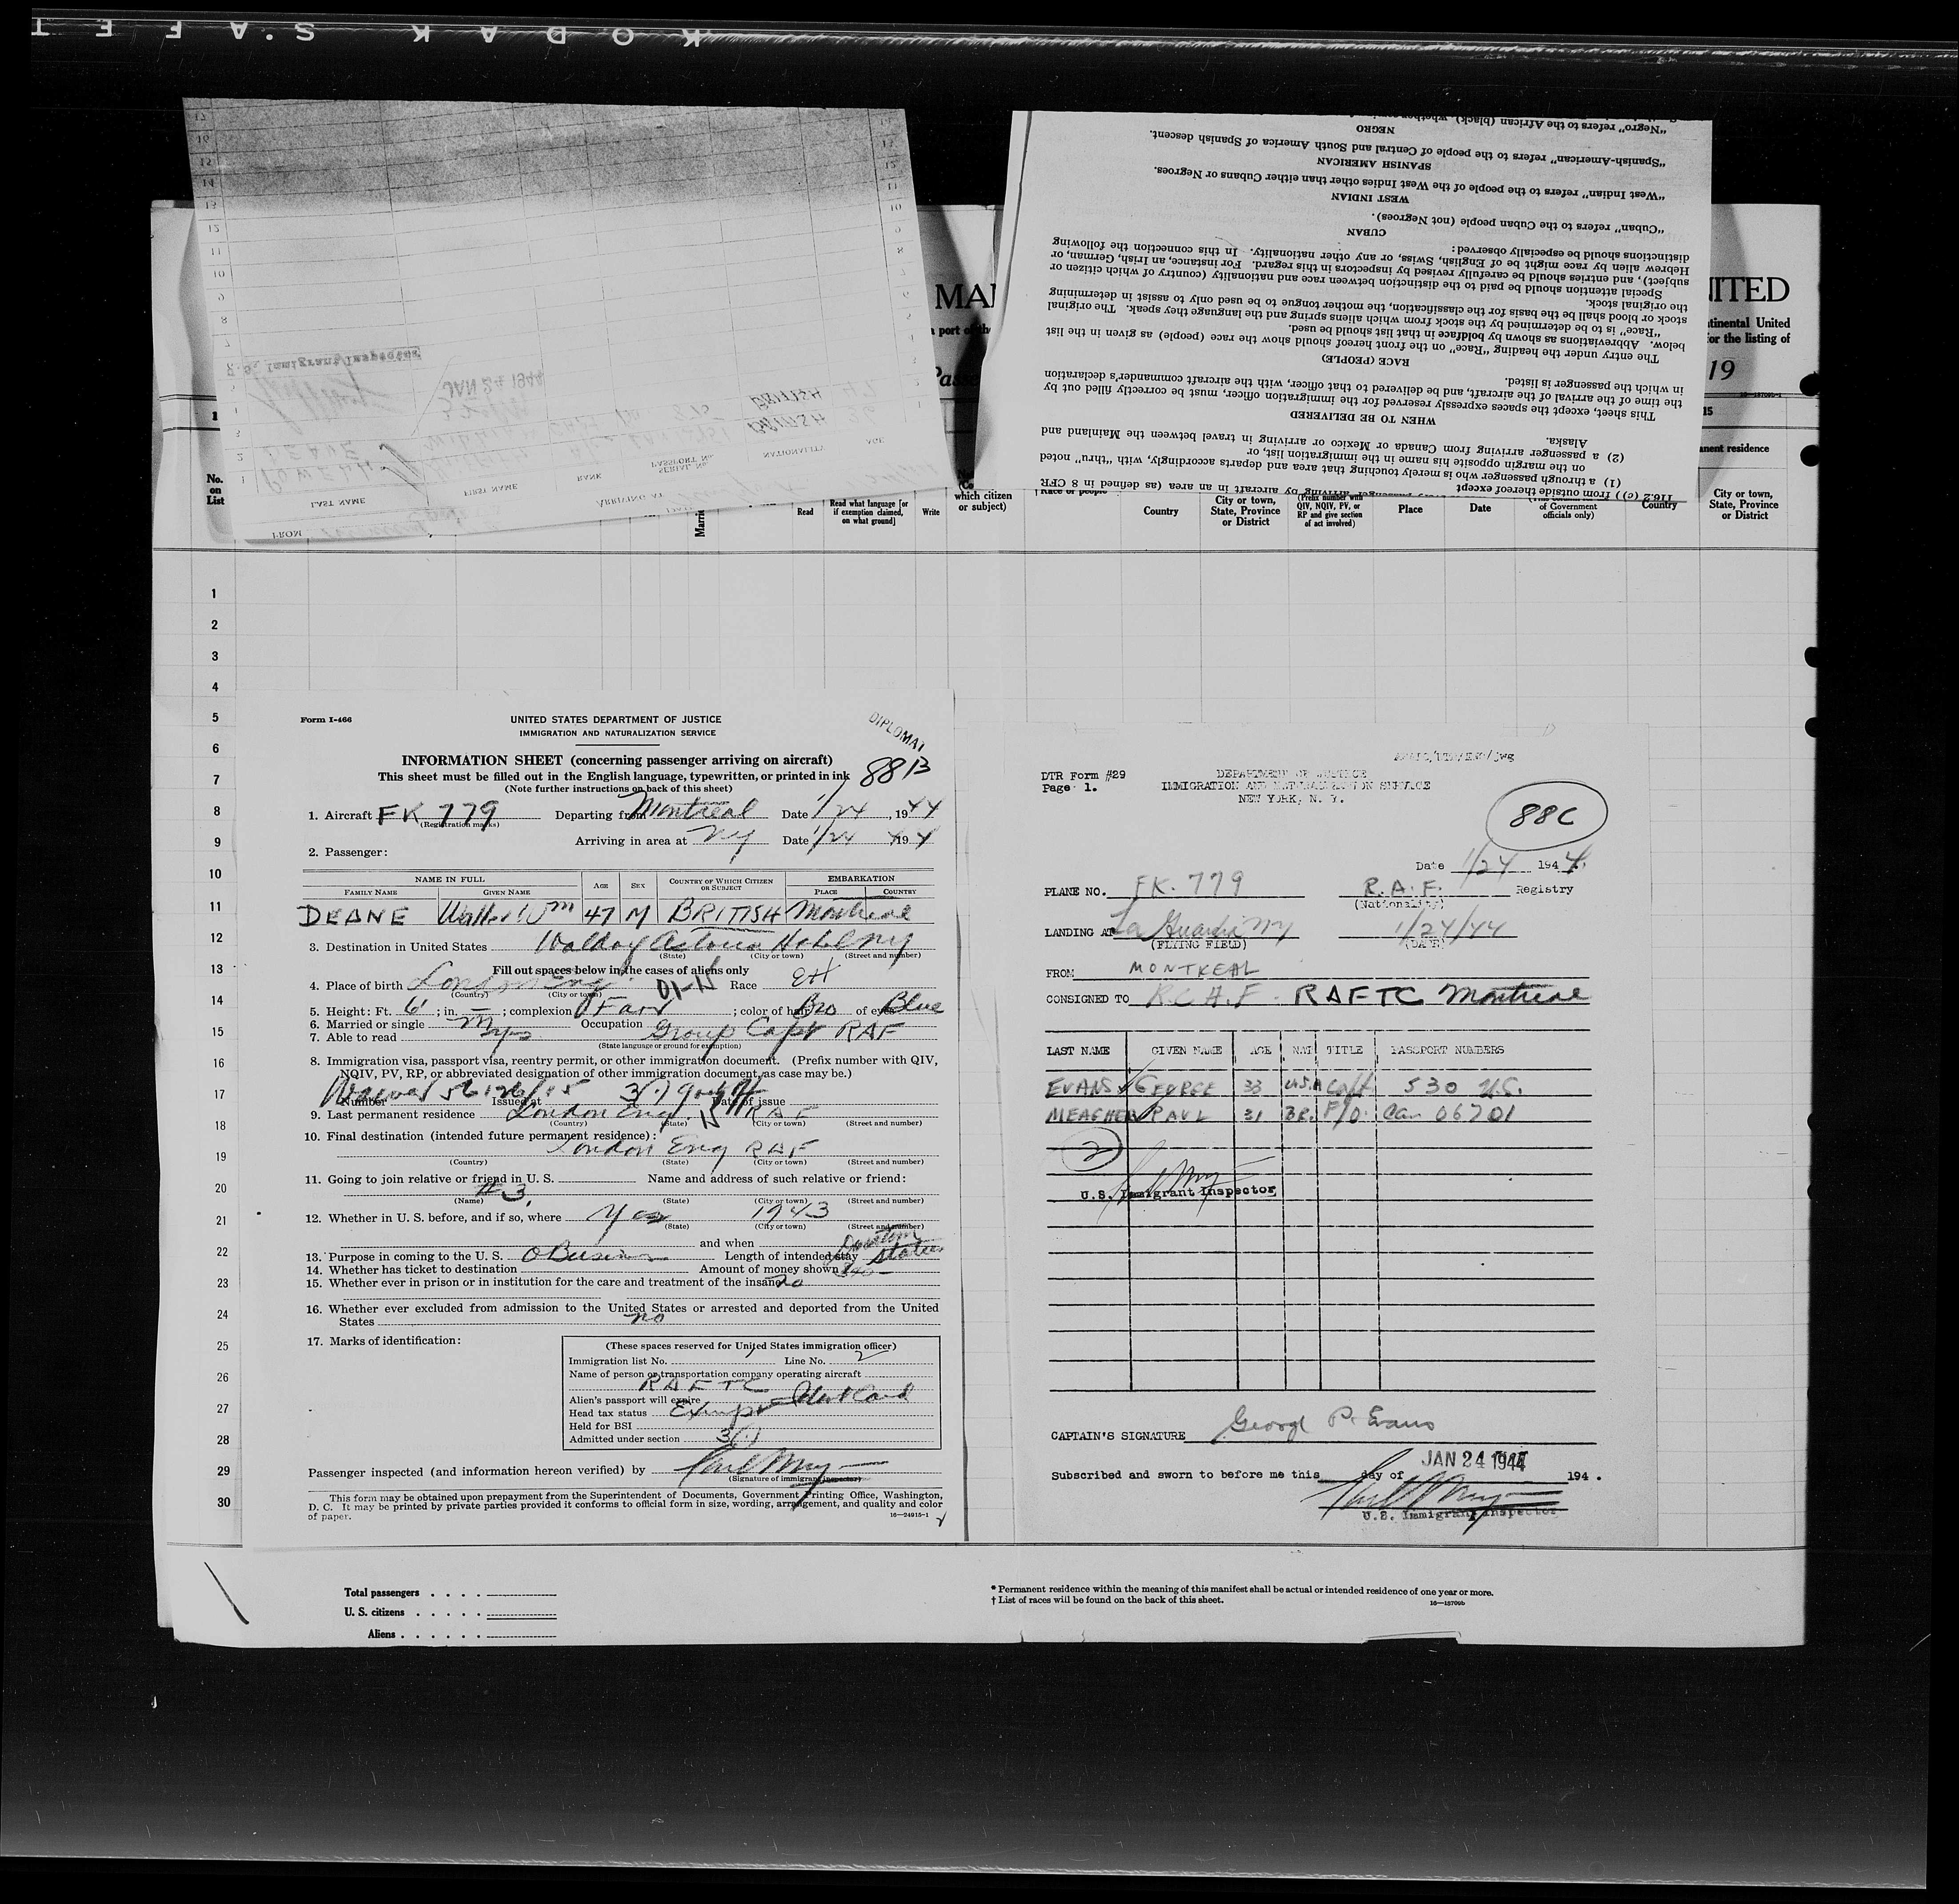 KODAK SAFET
FROM
LAST NAME FIRST NAME RANK SERIAL No. PASSPORT No. NATIONALITY AGE
ARRIVING AT
1 BRITISH
2 DEANE BRITISH
JAN 24 1944
U.S. Immigrant Inspector
116.2 (c)) from outside thereof except
(1) a through passenger who is merely touching that area and departs accordingly, with "thru" noted
on the margin opposite his name in the immigration list, or
(2) a passenger arriving from Canada or Mexico or arriving in travel between the Mainland and
Alaska.
WHEN TO BE DELIVERED
This sheet, except the spaces expressly reserved for the immigration officer, must be correctly filled out by
the time of the arrival of the aircraft, and be delivered to that officer, with the aircraft commander's declaration
in which the passenger is listed.
RACE (PEOPLE)
The entry under the heading "Race" on the front hereof should show the race (people) as given in the list
below. Abbreviations as shown by boldface in that list should be used.
"Race" is to be determined by the stock from which aliens spring and the language they speak. The original
stock or blood shall be the basis for the classification, the mother tongue to be used only to assist in determining
the original stock.
Special attention should be paid to the distinction between race and nationality (country of which citizen or
subject), and entries should be carefully revised by inspectors in this regard. For instance, an Irish, German, or
Hebrew alien by race might be of English, Swiss, or any other nationality. In this connection the following
distinctions should be especially observed:
CUBAN
"Cuban" refers to the Cuban people (not Negroes).
WEST INDIAN
"West Indian" refers to the people of the West Indies other than either Cubans or Negroes.
SPANISH AMERICAN
"Spanish-American" refers to the people of Central and South America of Spanish descent.
NEGRO
"Negro" refers to the African (black), whether
MA
ITED
a port of the
tinental United
or the listing of
Passe
19
15
anent residence
No.
on
List
Read
Read what language [or
if exemption claimed,
on what ground]
Write
which citizen
or subject)
Race or people
Country
City or town,
State, Province
or District
(Prefix number with
QIV, NQIV, PV, or
RP and give section
of act involved)
Place
Date
of Government
officials only)
Country
City or town,
State, Province
or District
1
2
3
4
5
6
7
8
9
10
11
12
13
14
15
16
17
18
19
20
21
22
23
24
25
26
27
28
29
30
Form I-466
UNITED STATES DEPARTMENT OF JUSTICE
IMMIGRATION AND NATURALIZATION SERVICE
DIPLOMAT
88B
INFORMATION SHEET (concerning passenger arriving on aircraft)
This sheet must be filled out in the English language, typewritten, or printed in ink
(Note further instructions on back of this sheet)
1. Aircraft FK 779 Departing from Montreal Date 1/24, 1944
(Registration marks)
Arriving in area at NY Date 1/24 1944
2. Passenger:
NAME IN FULL AGE SEX COUNTRY OF WHICH CITIZEN OR SUBJECT EMBARKATION
FAMILY NAME GIVEN NAME PLACE COUNTRY
DEANE Walter Wm 47 M BRITISH Montreal
3. Destination in United States Waldorf Astoria Hotel NY
(State) (City or town) (Street and number)
Fill out spaces below in the cases of aliens only
4. Place of birth London Eng Race
(Country) (City or town)
5. Height: Ft. 6 ; in. – ; complexion Fair ; color of hair Bro of eyes Blue
6. Married or single M Occupation Group Capt RAF
7. Able to read yes
(State language or ground for exemption)
8. Immigration visa, passport visa, reentry permit, or other immigration document. (Prefix number with QIV,
NQIV, PV, RP, or abbreviated designation of other immigration document, as case may be.)
Number Issued at Date of issue
9. Last permanent residence London Eng. RAF
(Country) (State) (City or town) (Street and number)
10. Final destination (intended future permanent residence):
London Eng RAF
(Country) (State) (City or town) (Street and number)
11. Going to join relative or friend in U. S. Name and address of such relative or friend:
#3
(Name) (State) (City or town) (Street and number)
12. Whether in U. S. before, and if so, where Yes 1943
(State) (City or town) (Street and number)
and when
13. Purpose in coming to the U. S. O Business Length of intended stay Duration status
14. Whether has ticket to destination Amount of money shown
15. Whether ever in prison or in institution for the care and treatment of the insane no
16. Whether ever excluded from admission to the United States or arrested and deported from the United
States no
17. Marks of identification:
(These spaces reserved for United States immigration officer)
Immigration list No. Line No. 2
Name of person or transportation company operating aircraft
RAFTC
Alien's passport will expire Ident Card
Head tax status Exempt
Held for BSI
Admitted under section 3(1)
Passenger inspected (and information hereon verified) by
(Signature of immigrant inspector)
This form may be obtained upon prepayment from the Superintendent of Documents, Government Printing Office, Washington,
D. C. It may be printed by private parties provided it conforms to official form in size, wording, arrangement, and quality and color
of paper.
16—24915-1
DTR Form #29
Page 1.
DEPARTMENT OF JUSTICE
IMMIGRATION AND NATURALIZATION SERVICE
NEW YORK, N. Y.
88C
Date 1/24 1944.
PLANE NO. FK. 779 R.A.F. Registry
(Nationality)
LANDING AT La Guardia NY 1/24/44
(FLYING FIELD) (DATE)
FROM MONTREAL
CONSIGNED TO R.C.A.F. RAFTC Montreal
LAST NAME GIVEN NAME AGE NAT TITLE PASSPORT NUMBERS
EVANS GEORGE 33 USA Capt 530 U.S.
MEAGHER PAUL 31 BR. F/O. Can 06701
2
U.S. Immigrant Inspector
CAPTAIN'S SIGNATURE George P. Evans
Subscribed and sworn to before me this day of JAN 24 1944 194 .
U.S. Immigrant Inspector
Total passengers . . . .
U. S. citizens . . . . .
Aliens . . . . . .
* Permanent residence within the meaning of this manifest shall be actual or intended residence of one year or more.
† List of races will be found on the back of this sheet.
16—15709b